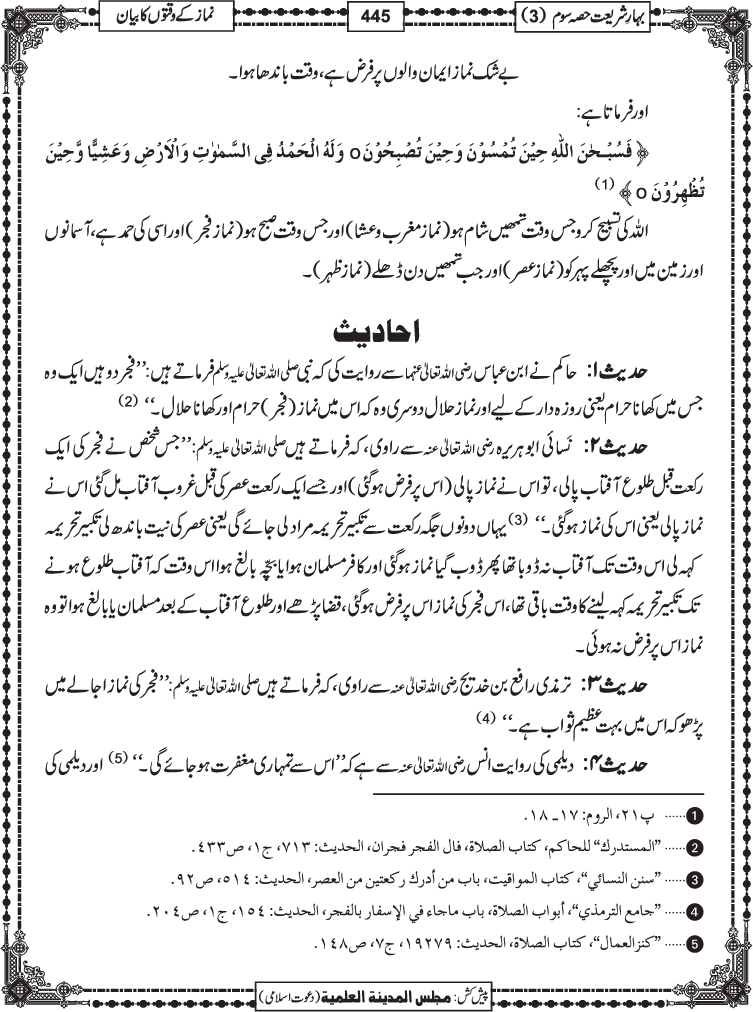 بہار شریعت حصہ سوم (3)
445
نماز کے وقتوں کا بیان
بے شک نماز ایمان والوں پر فرض ہے، وقت باندھا ہوا۔
اور فرماتا ہے:
﴿ فَسُبْحٰنَ اللّٰهِ حِیْنَ تُمْسُوْنَ وَحِیْنَ تُصْبِحُوْنَ o وَلَهُ الْحَمْدُ فِی السَّمٰوٰتِ وَالْاَرْضِ وَعَشِیًّا وَّحِیْنَ
تُظْهِرُوْنَ o ﴾ (1)
اللہ کی تسبیح کرو جس وقت تمھیں شام ہو (نماز مغرب و عشا) اور جس وقت صبح ہو (نماز فجر) اور اسی کی حمد ہے، آسمانوں
اور زمین میں اور پچھلے پہر کو (نماز عصر) اور جب تمھیں دن ڈھلے (نماز ظہر)۔
احادیث
حدیث ۱: حاکم نے ابن عباس رضی اللہ تعالیٰ عنہما سے روایت کی کہ نبی صلی اللہ تعالیٰ علیہ وسلم فرماتے ہیں: ’’فجر دو ہیں ایک وہ
جس میں کھانا حرام یعنی روزہ دار کے لیے اور نماز حلال دوسری وہ کہ اس میں نماز (فجر) حرام اور کھانا حلال۔‘‘ (2)
حدیث ۲: نَسائی ابوہریرہ رضی اللہ تعالیٰ عنہ سے راوی، کہ فرماتے ہیں صلی اللہ تعالیٰ علیہ وسلم: ’’جس شخص نے فجر کی ایک
رکعت قبل طلوع آفتاب پالی، تو اس نے نماز پالی (اس پر فرض ہوگئی) اور جسے ایک رکعت عصر کی قبل غروب آفتاب مل گئی اس نے
نماز پالی یعنی اس کی نماز ہوگئی۔‘‘ (3) یہاں دونوں جگہ رکعت سے تکبیر تحریمہ مراد لی جائے گی یعنی عصر کی نیت باندھ لی تکبیر تحریمہ
کہہ لی اس وقت تک آفتاب نہ ڈوبا تھا پھر ڈوب گیا نماز ہوگئی اور کافر مسلمان ہوا یا بچّہ بالغ ہوا اس وقت کہ آفتاب طلوع ہونے
تک تکبیر تحریمہ کہہ لینے کا وقت باقی تھا، اس فجر کی نماز اس پر فرض ہوگئی، قضا پڑھے اور طلوع آفتاب کے بعد مسلمان یا بالغ ہوا تو وہ
نماز اس پر فرض نہ ہوئی۔
حدیث ۳: ترمذی رافع بن خدیج رضی اللہ تعالیٰ عنہ سے راوی، کہ فرماتے ہیں صلی اللہ تعالیٰ علیہ وسلم: ’’فجر کی نماز اجالے میں
پڑھو کہ اس میں بہت عظیم ثواب ہے۔‘‘ (4)
حدیث ۴: دیلمی کی روایت انس رضی اللہ تعالیٰ عنہ سے ہے کہ ’’اس سے تمہاری مغفرت ہو جائے گی۔‘‘ (5) اور دیلمی کی
1 ...... پ۲۱، الروم: ۱۷ـ ۱۸.
2 ...... ’’المستدرك‘‘ للحاكم، كتاب الصلاة، فال الفجر فجران، الحديث: ۷۱۳، ج۱، ص۴۳۳.
3 ...... ’’سنن النسائي‘‘، كتاب المواقيت، باب من أدرك ركعتين من العصر، الحديث: ۵۱۴، ص۹۲.
4 ...... ’’جامع الترمذي‘‘، أبواب الصلاة، باب ماجاء في الإسفار بالفجر، الحديث: ۱۵۴، ج۱، ص۲۰۴.
5 ...... ’’كنز العمال‘‘، كتاب الصلاة، الحديث: ۱۹۲۷۹، ج۷، ص۱۴۸.
پیش کش: مجلس المدینة العلمیة (دعوت اسلامی)